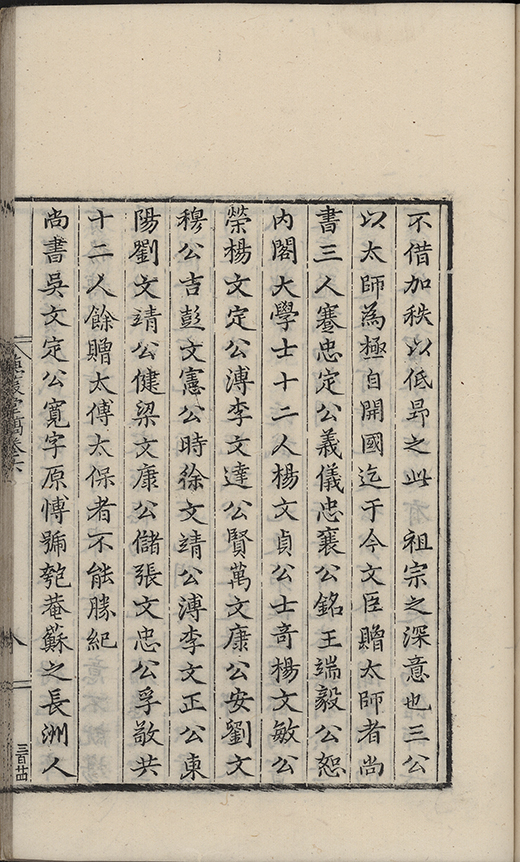 不借加秩以低昂之此　祖宗之深意也三公
以太師為極自開國迄于今文臣贈太師者尚
書三人蹇忠定公義儀忠襄公銘王端毅公恕
內閣大學士十二人楊文貞公士奇楊文敏公
榮楊文定公溥李文達公賢萬文康公安劉文
穆公吉彭文憲公時徐文靖公溥李文正公東
陽劉文靖公健梁文康公儲張文忠公孚敬共
十二人餘贈太傅太保者不能勝紀
尚書吳文定公寬字原博號匏菴蘇之長洲人
卷六
八
三百廿四